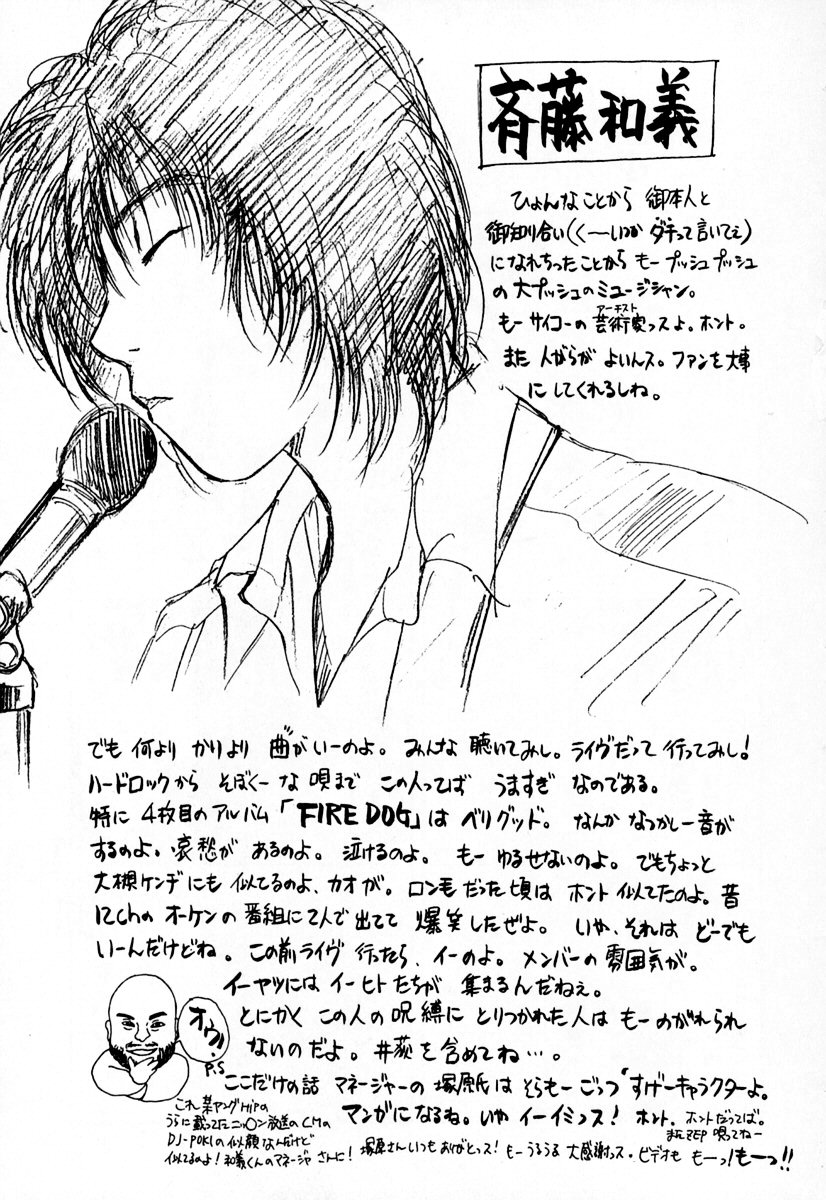 斉藤和義
ひょんなことから 御本人と
御知り合い(くーいつか ダチって言いてぇ)
になれちったことから もー プッシュプッシュ
の 大プッシュのミュージシャン。
アーチスト
もー サイコーの 芸術家っスよ。ホント。
また 人がらが よいんス。ファンを大事
にしてくれるしね。
でも 何より かにより 曲がいーのよ。みんな 聴いてみし。ライヴだって 行ってみし!
ハードロックから そぼくーな 唄まで この人ってば うますぎ なのである。
特に 4枚目のアルバム「FIRE DOG」は ベリグッド。なんか なつかしー音が
するのよ。哀愁が あるのよ。泣けるのよ。もー ゆるせないのよ。でもちょっと
大槻ケンヂにも 似てるのよ、カオが。ロン毛だった頃は ホント 似てたのよ。昔
12chの オーケンの 番組に2人で 出てて 爆笑したぜよ。いや、それは どーでも
いーんだけどね。この前 ライヴ 行ったら、イーのよ。メンバーの 雰囲気が。
イーヤツには イーヒトたちが 集まるんだねぇ。
とにかく この人の呪縛に とりつかれた人は もー のがれられ
ないのだよ。井荻を含めてね…。
オウッ!
P.S
ここだけの話 マネージャーの 塚原氏は そらもー ごっつ すげーキャラクターよ。
マンガになるね。いや イーイミっス! ホント。ホントだってば。
またZEP 唄ってねー
これ 某ヤングHipの
うらに載ってたニッ○ン放送のCMの
DJ-POKIの似顔なんだけど
似てるのよ!和義くんのマネージャさんに!
塚原さんいつもありがとっス! もーうるうる 大感謝っス。ビデオも もーっ!もーっ!!